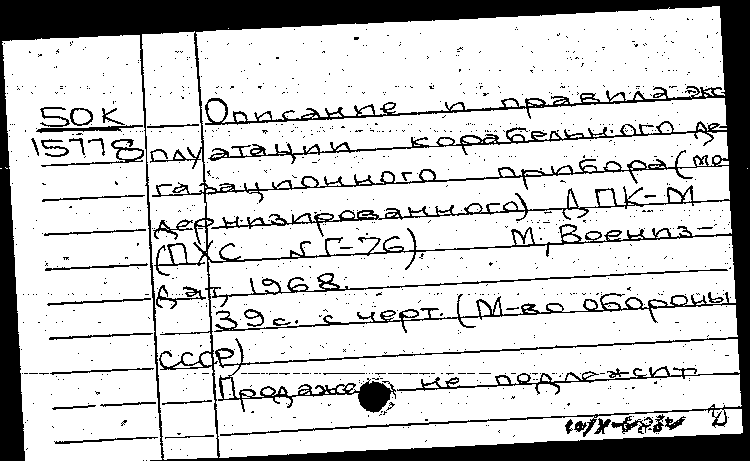 50К Описание и правила экс-
15778 плуатации корабельного де-
газационного прибора (мо-
дернизированного) ДПК-М
(ПХС №Г-76). М., Воениз-
дат, 1968.
39 с. с черт. (М-во обороны
СССР)
Продаже не подлежит